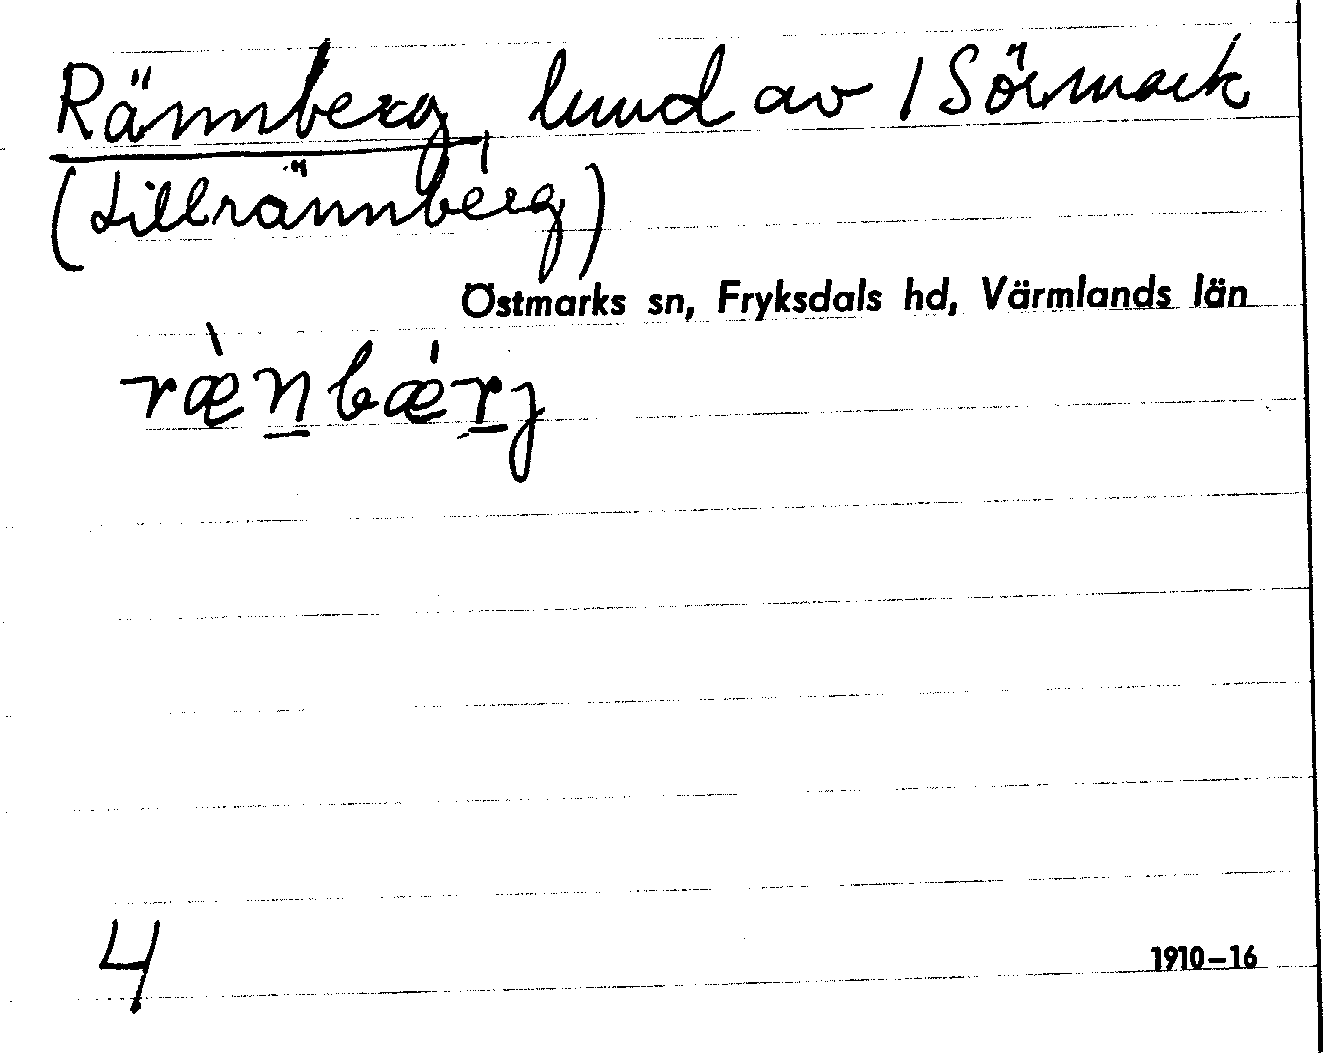 Rännberg, lund av 1 Sörmark
(Lillrännberg)
Östmarks sn, Fryksdals hd, Värmlands län
ræ̀n̲bǽr̲j
4
1910–16